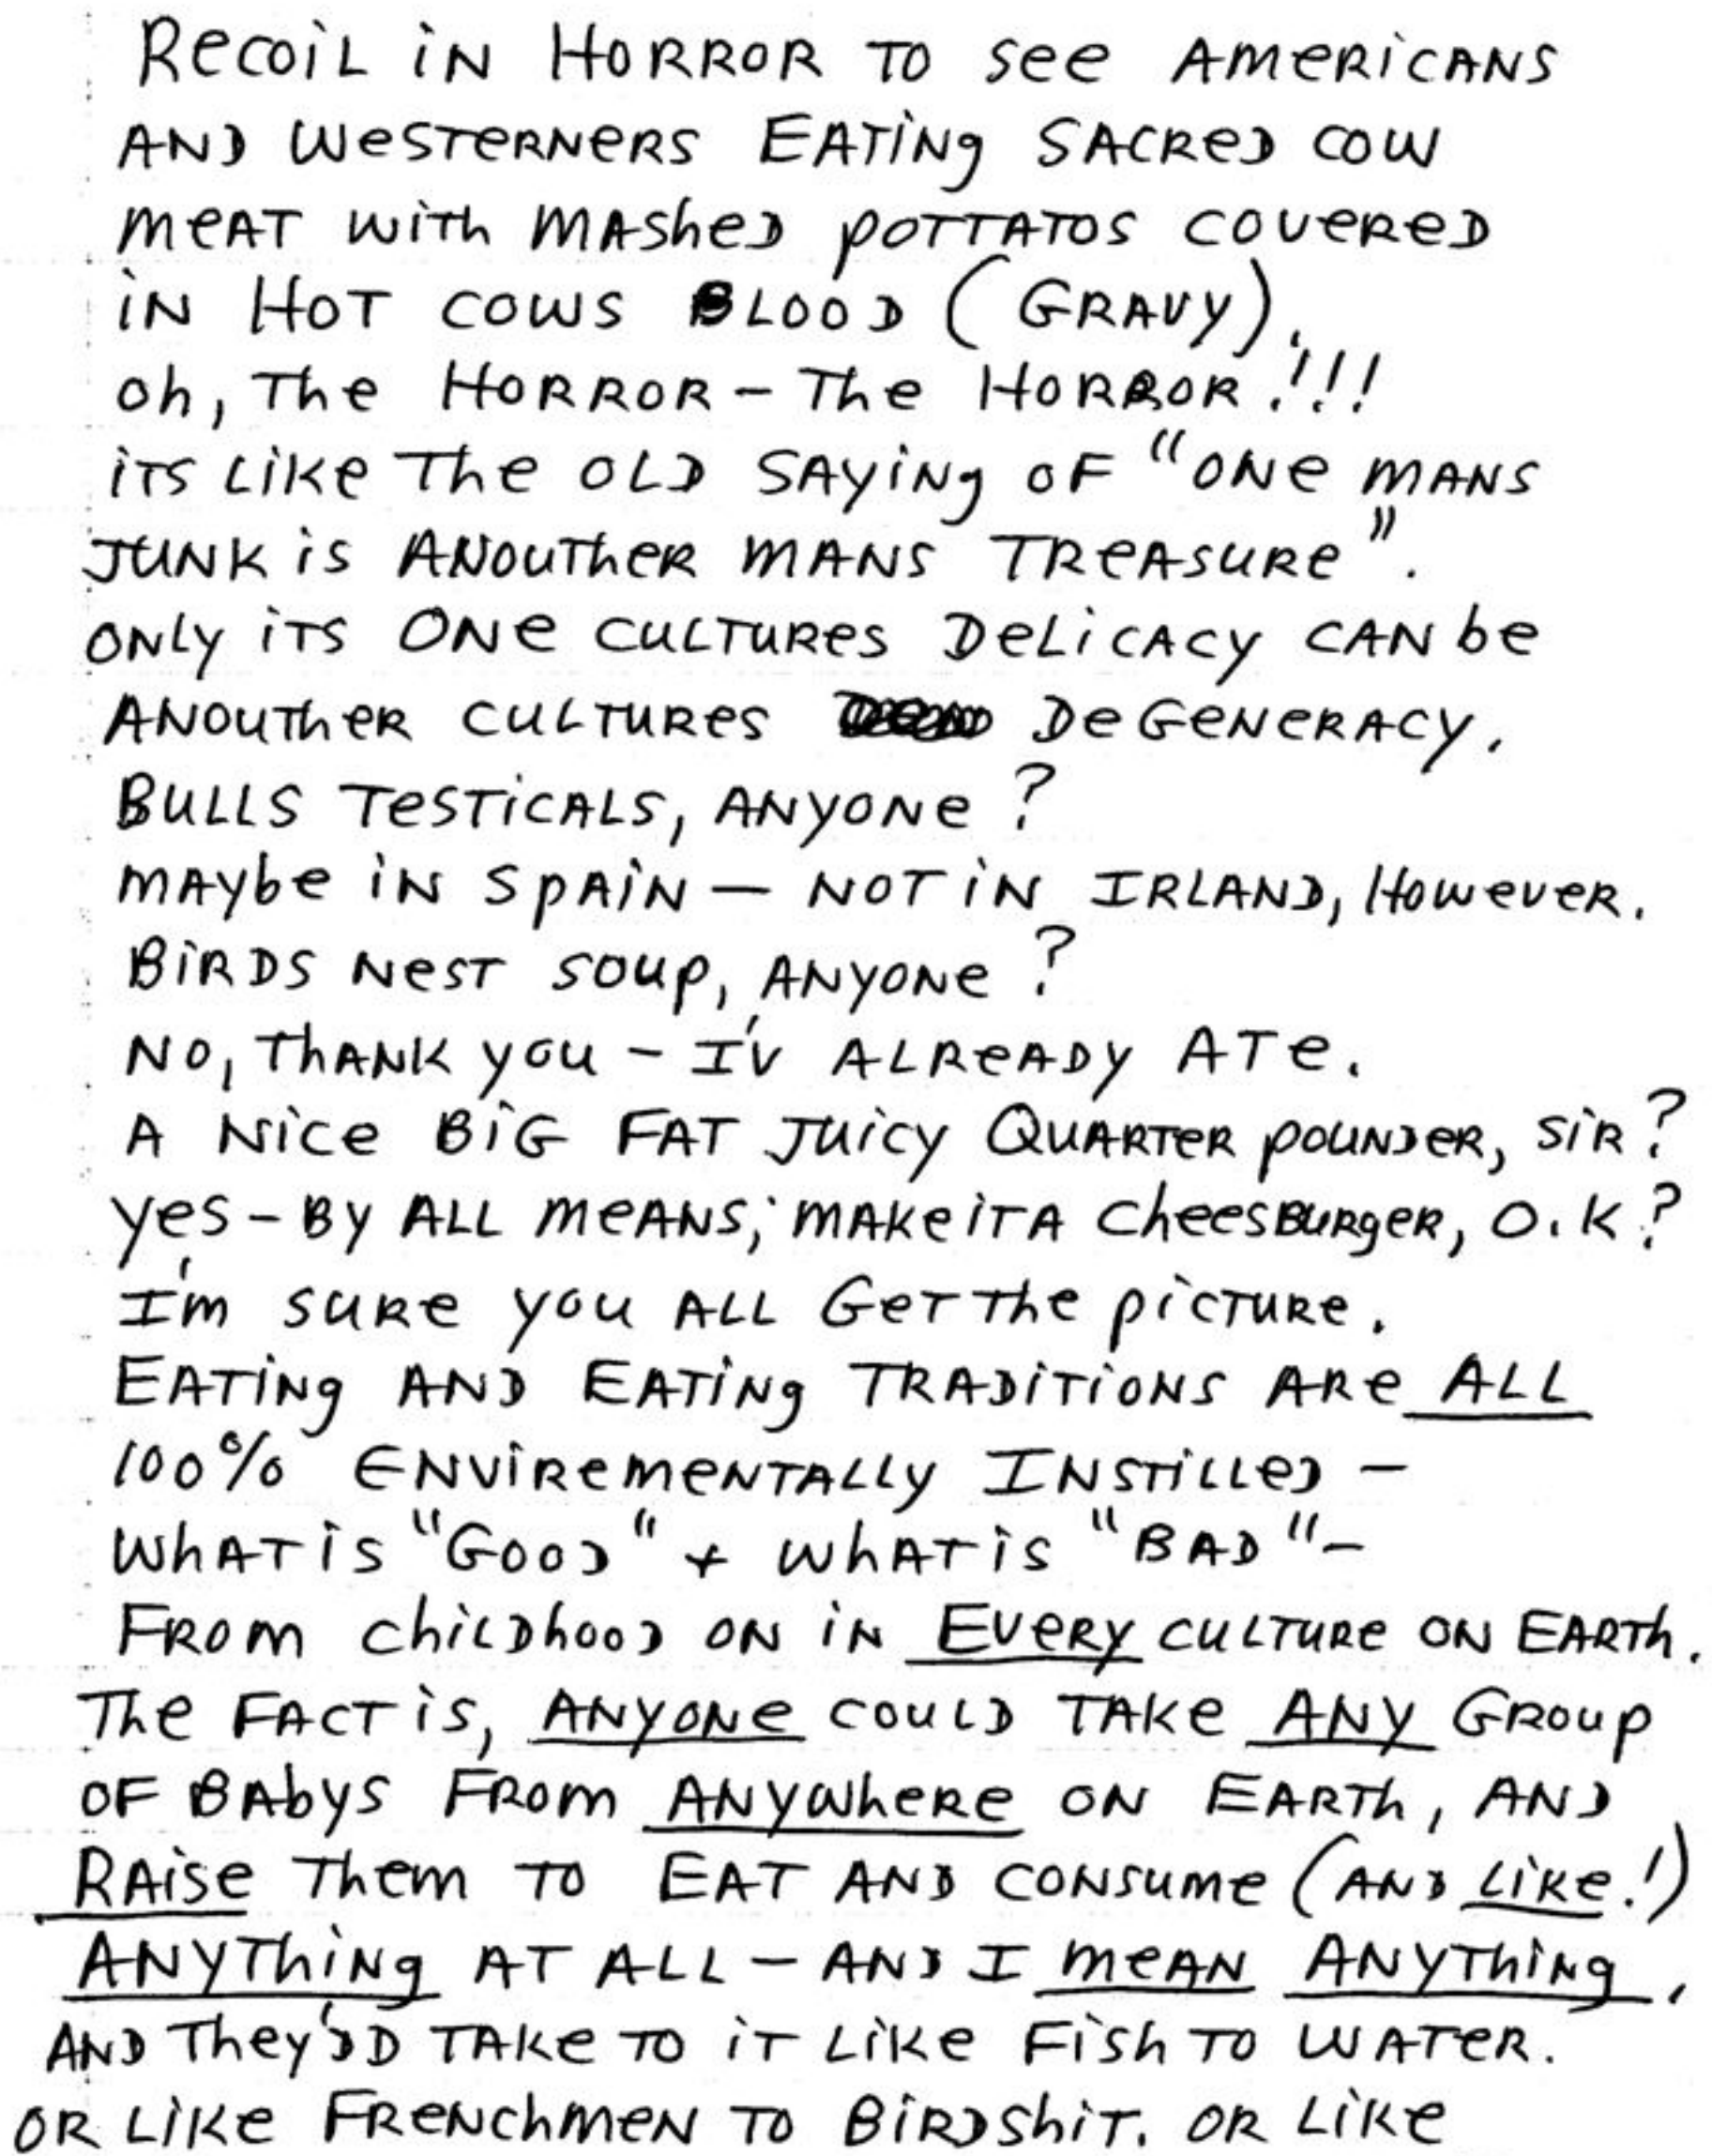 Recoil in Horror to see Americans
and Westerners Eating Sacred cow
meat with mashed pottatos covered
in Hot cows Blood (Gravy).
oh, The Horror - The Horror!!!
its like the old saying of "one mans
Junk is Anouther mans Treasure".
only its One cultures Delicacy can be
Anouther cultures DeGeneracy.
Bulls Testicals, Anyone?
maybe in Spain - not in Irland, However.
Birds Nest soup, Anyone?
No, Thank you - I'v Already Ate.
A Nice Big Fat Juicy Quarter pounder, sir?
yes - By All means; make it a cheesburger, O.K.?
I'm sure you All Get the picture.
Eating And Eating Traditions Are ALL
100% Envirementally Instilled -
What is "Good" + what is "BAD" -
From childhood on in Every culture on Earth.
The Fact is, Anyone could Take Any Group
of Babys From Anywhere on Earth, And
Raise Them To Eat And consume (And Like!)
Anything At All - And I mean Anything,
And They'dD Take to it Like Fish to water.
or Like Frenchmen to Birdshit. or Like